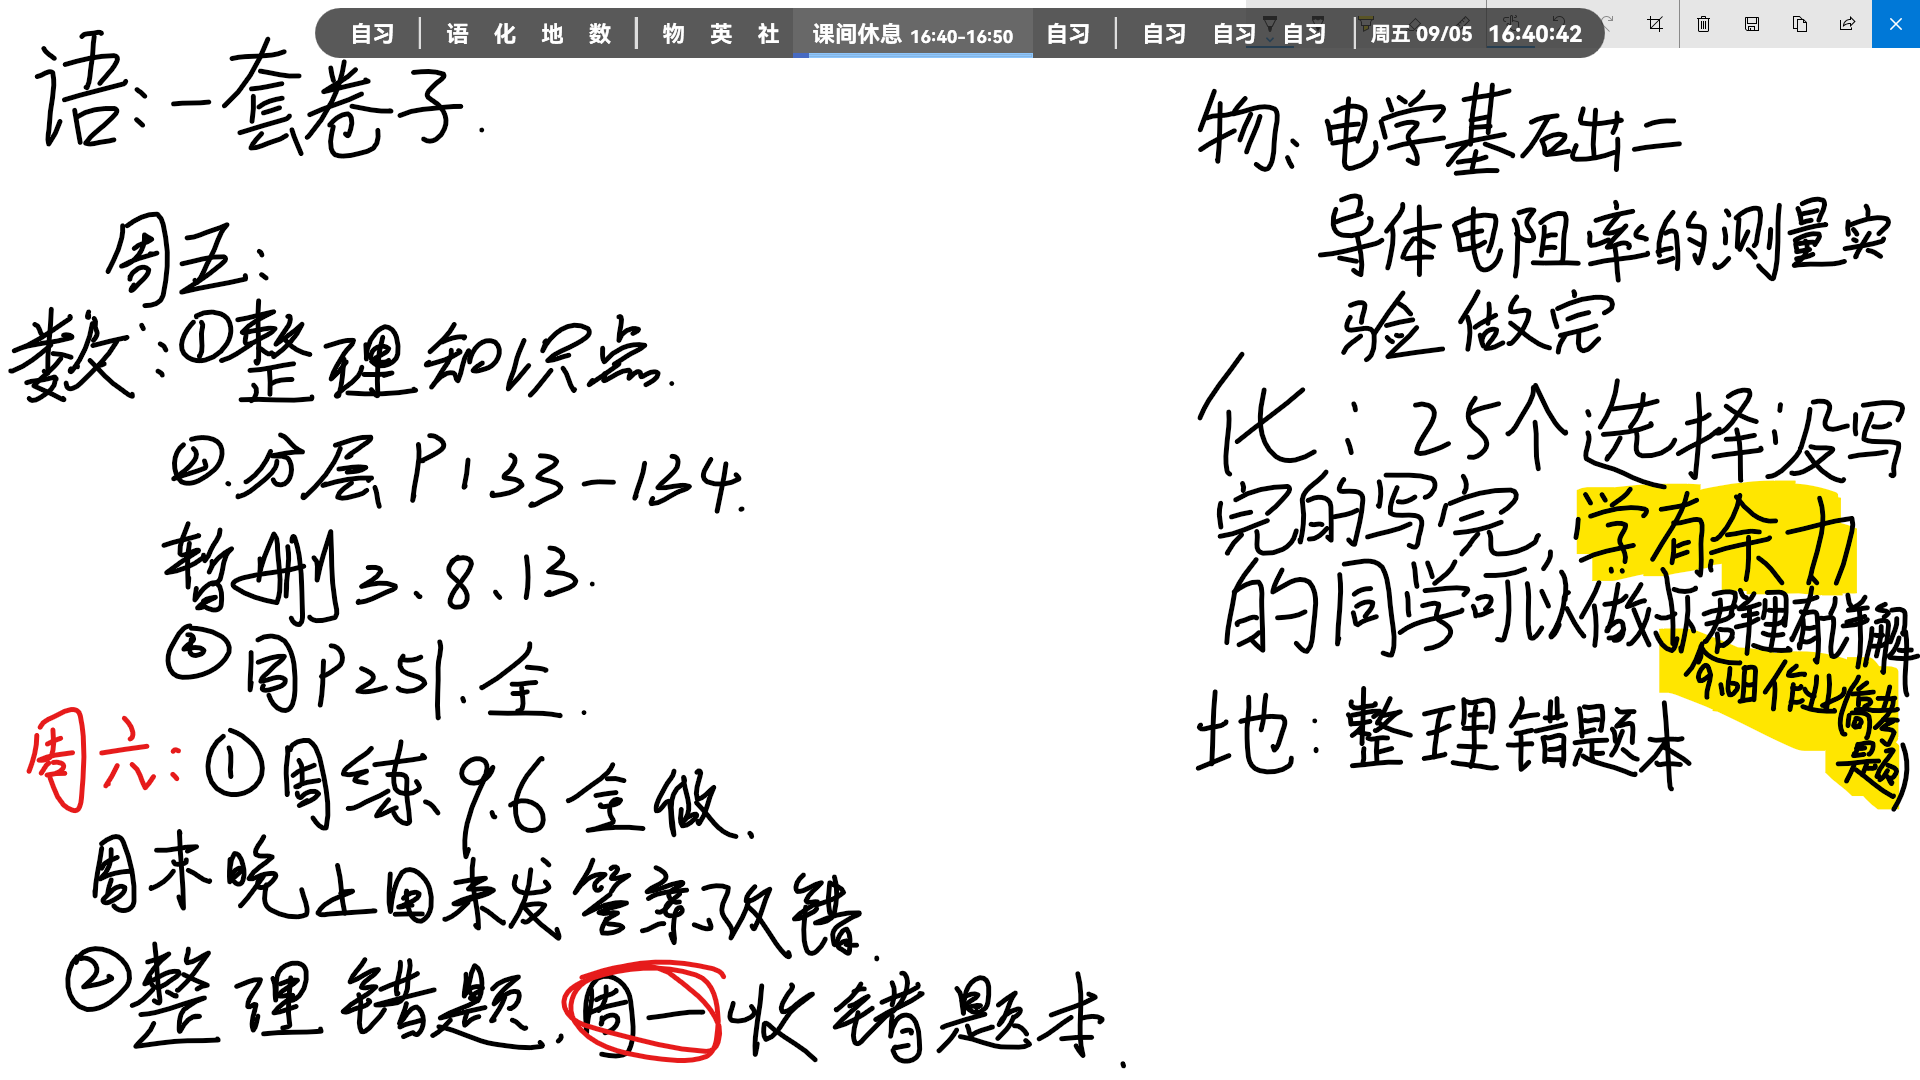 自习 | 语 化 地 数 | 物 英 社 课间休息 16:40-16:50 自习 | 自习 自习 自习 | 周五 09/05 16:40:42
语：一套卷子.
周五：
数：①整理知识点.
②.分层P133-134.
暂删3、8、13.
③同P251.全.
周六：①周练9.6全做.
周末晚上回来发答案改错.
②整理错题，周一收错题本.
物：电学基础出二
导体电阻率的测量实
验做完
化：25个选择没写
完的写完，学有余力
的同学可以做
群里有详解
9.6日作业(高考
题)
地：整理错题本